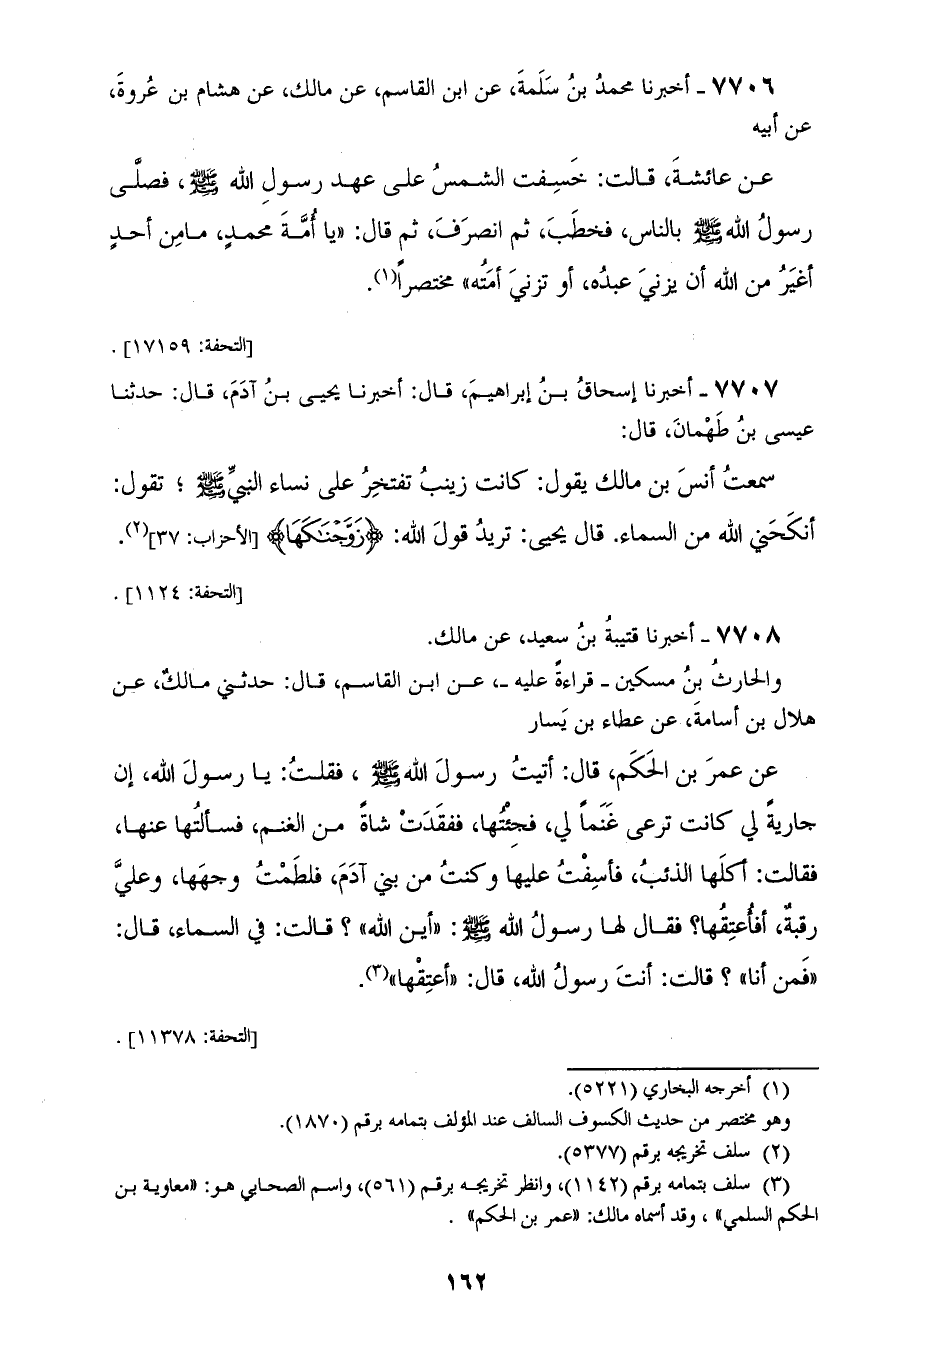 ٧٧٠٦ ـ أخبرنا محمدُ بنُ سَلَمةَ، عن ابن القاسم، عن مالك، عن هشام بن عُروةَ،
عن أبيه
عن عائشةَ، قالت: خَسِفت الشمسُ على عهد رسولِ الله ﷺ، فصلَّى
رسولُ الله ﷺ بالناس، فخطَبَ، ثم انصرَفَ، ثم قال: «يا أُمَّةَ محمدٍ، مامِن أحدٍ
أغيَرُ من الله أن يزنيَ عبدُه، أو تزنيَ أمَتُه» مختصراً(١).
[التحفة: ١٧١٥٩] .
٧٧٠٧ ـ أخبرنا إسحاقُ بنُ إبراهيمَ، قال: أخبرنا يحيى بنُ آدَمَ، قال: حدثنا
عيسى بنُ طَهْمانَ، قال:
سمعتُ أنسَ بن مالك يقول: كانت زينبُ تفتخِرُ على نساء النبيِّ ﷺ ؛ تقول:
أنكَحَني الله من السماء. قال يحيى: تريدُ قولَ الله: ﴿زَوَّجْنَاكَهَا﴾ [الأحزاب: ٣٧](٢).
[التحفة: ١١٢٤] .
٧٧٠٨ ـ أخبرنا قتيبةُ بنُ سعيد، عن مالك.
والحارثُ بنُ مسكين ـ قراءةً عليه ـ، عن ابن القاسم، قال: حدثني مالكٌ، عن
هلال بن أسامةَ، عن عطاء بن يَسار
عن عمرَ بن الحَكَم، قال: أتيتُ رسولَ الله ﷺ ، فقلتُ: يا رسولَ الله، إن
جاريةً لي كانت ترعى غَنَماً لي، فجِئتُها، ففقَدَتْ شاةً من الغنم، فسألتُها عنها،
فقالت: أكلَها الذئبُ، فأسِفْتُ عليها وكنتُ من بني آدَمَ، فلطَمْتُ وجهَها، وعليَّ
رقبةٌ، أفأُعتِقُها؟ فقال لها رسولُ الله ﷺ: «أين الله» ؟ قالت: في السماء، قال:
«فَمن أنا» ؟ قالت: أنتَ رسولُ الله، قال: «أعتِقْها»(٣).
[التحفة: ١١٣٧٨] .
(١) أخرجه البخاري (٥٢٢١).
وهو مختصر من حديث الكسوف السالف عند المؤلف بتمامه برقم (١٨٧٠).
(٢) سلف تخريجه برقم (٥٣٧٧).
(٣) سلف بتمامه برقم (١١٤٢)، وانظر تخريجه برقم (٥٦١)، واسم الصحابي هو: «معاوية بن
الحكم السلمي» ، وقد أسماه مالك: «عمر بن الحكم» .
١٦٢